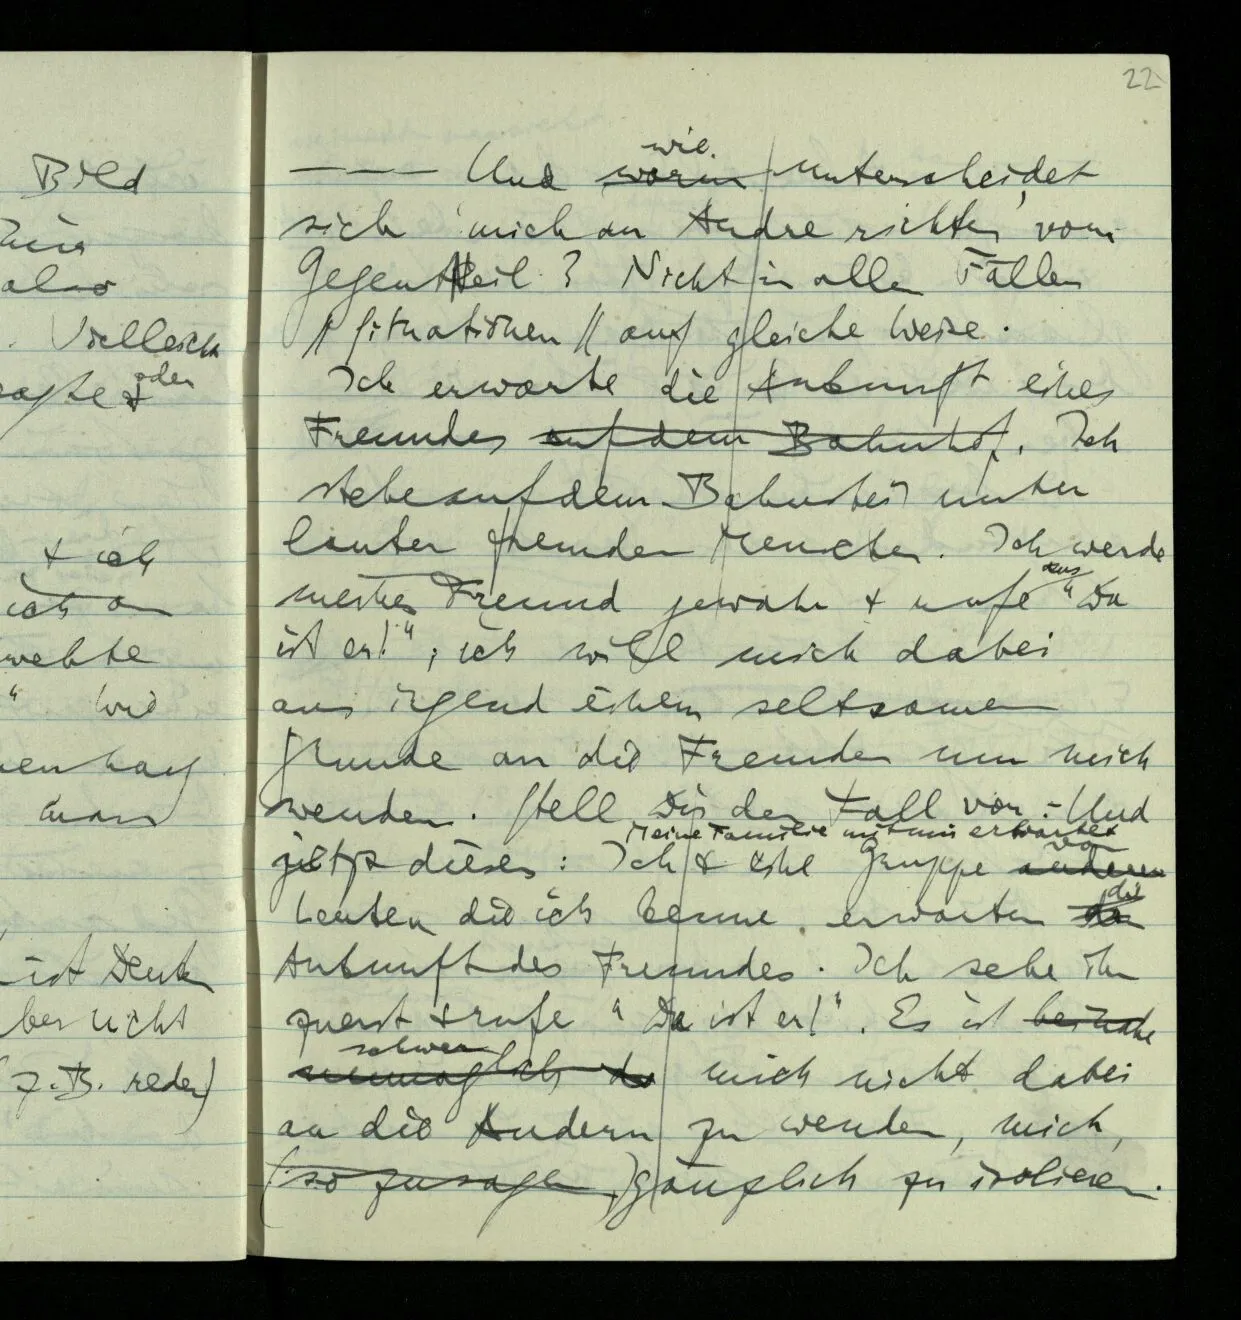 22
Bild
also
Vielleicht
sagte & oder
& ich
ich an
" Wie
man
ist Denk
ber nicht
z.B. reden)
wie
– – – Und worin unterscheidet
sich 'mich an Andre richten' vom
Gegenteil? Nicht in allen Fällen
// Situationen // auf gleiche Weise.
Ich erwarte die Ankunft eines
Freundes auf dem Bahnhof. Ich
stehe auf dem Bahnsteig unter
lauter fremden Menschen. Ich werde
aus
meinen Freund gewahr & rufe "Da
ist er!"; ich will mich dabei
aus irgend einem seltsamen
Grunde an die Fremden um mich
wenden. Stell Dir den Fall vor. – Und
Meine Familie mit mir erwartet
von
jetzt diesen: Ich & eine Gruppe anderen
die
Leuten die ich kenne, erwarten den
Ankunft des Freundes. Ich sehe ihn
zuerst & rufe "Da ist er!". Es ist beinahe
schwer
unmöglich mich nicht dabei
an die Andern zu wenden, mich,
(so zusagen,) gänzlich zu isolieren.